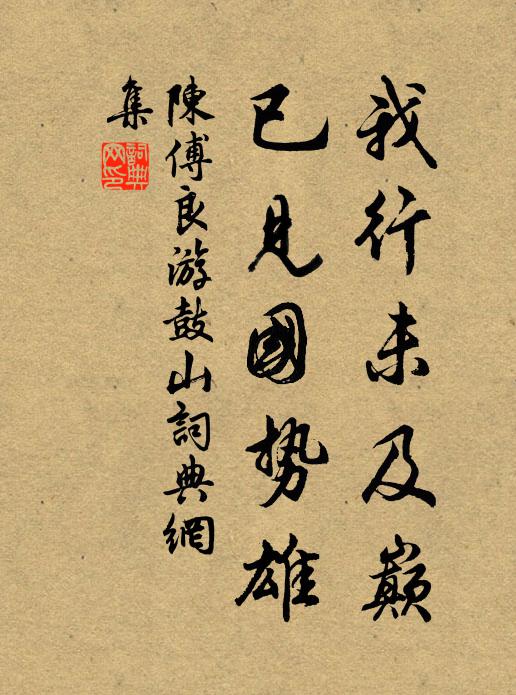 我行未及巔
已見國勢雄
陳傅良游鼓山詞典網
集
詞典网印